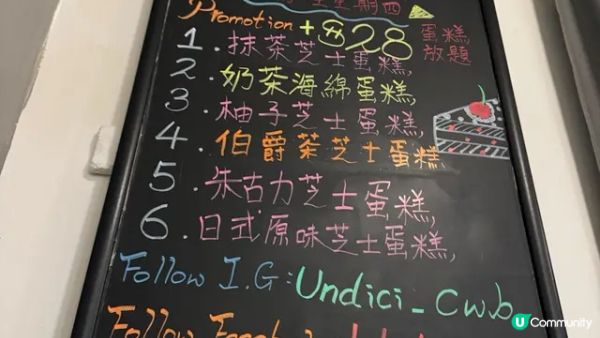 星期四
Promotion +$28 蛋糕放題
1. 抹茶芝士蛋糕,
2. 奶茶海綿蛋糕,
3. 柚子芝士蛋糕,
4. 伯爵茶芝士蛋糕
5. 朱古力芝士蛋糕,
6. 日式原味芝士蛋糕,
Follow I.G: Undici_cwb
Follow
U Community